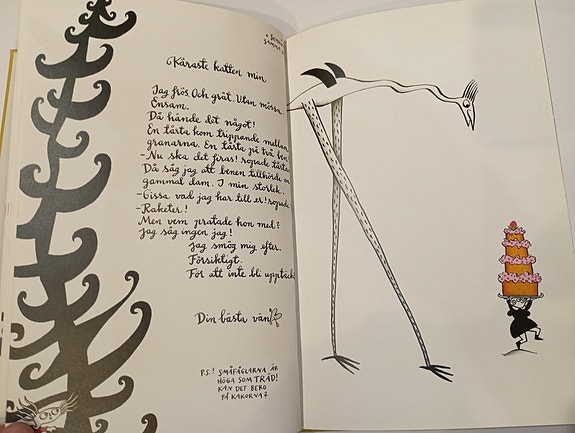 Käraste katten min
Jag frös. Och grät. Utan mössa.
Ensam.
Då hände det något!
En tårta kom trippande mellan
granarna. En tårta på två ben
-Nu ska det feras! ropade tårtan
Då såg jag att benen tillhörde en
gammal dam. I min storlek.
-Gissa vad jag har till er! ropade
-Raketer!
Men vem pratade hon med?
Jag såg ingen jag!
Jag smög mig efter.
Försiktigt.
För att inte bli upptäckt
Din bästa vän
P.S.! SMÅFÅGLARNA ÄR
HÖGA SOM TRÄD!
KAN DET BERO
PÅ KAKORNA?